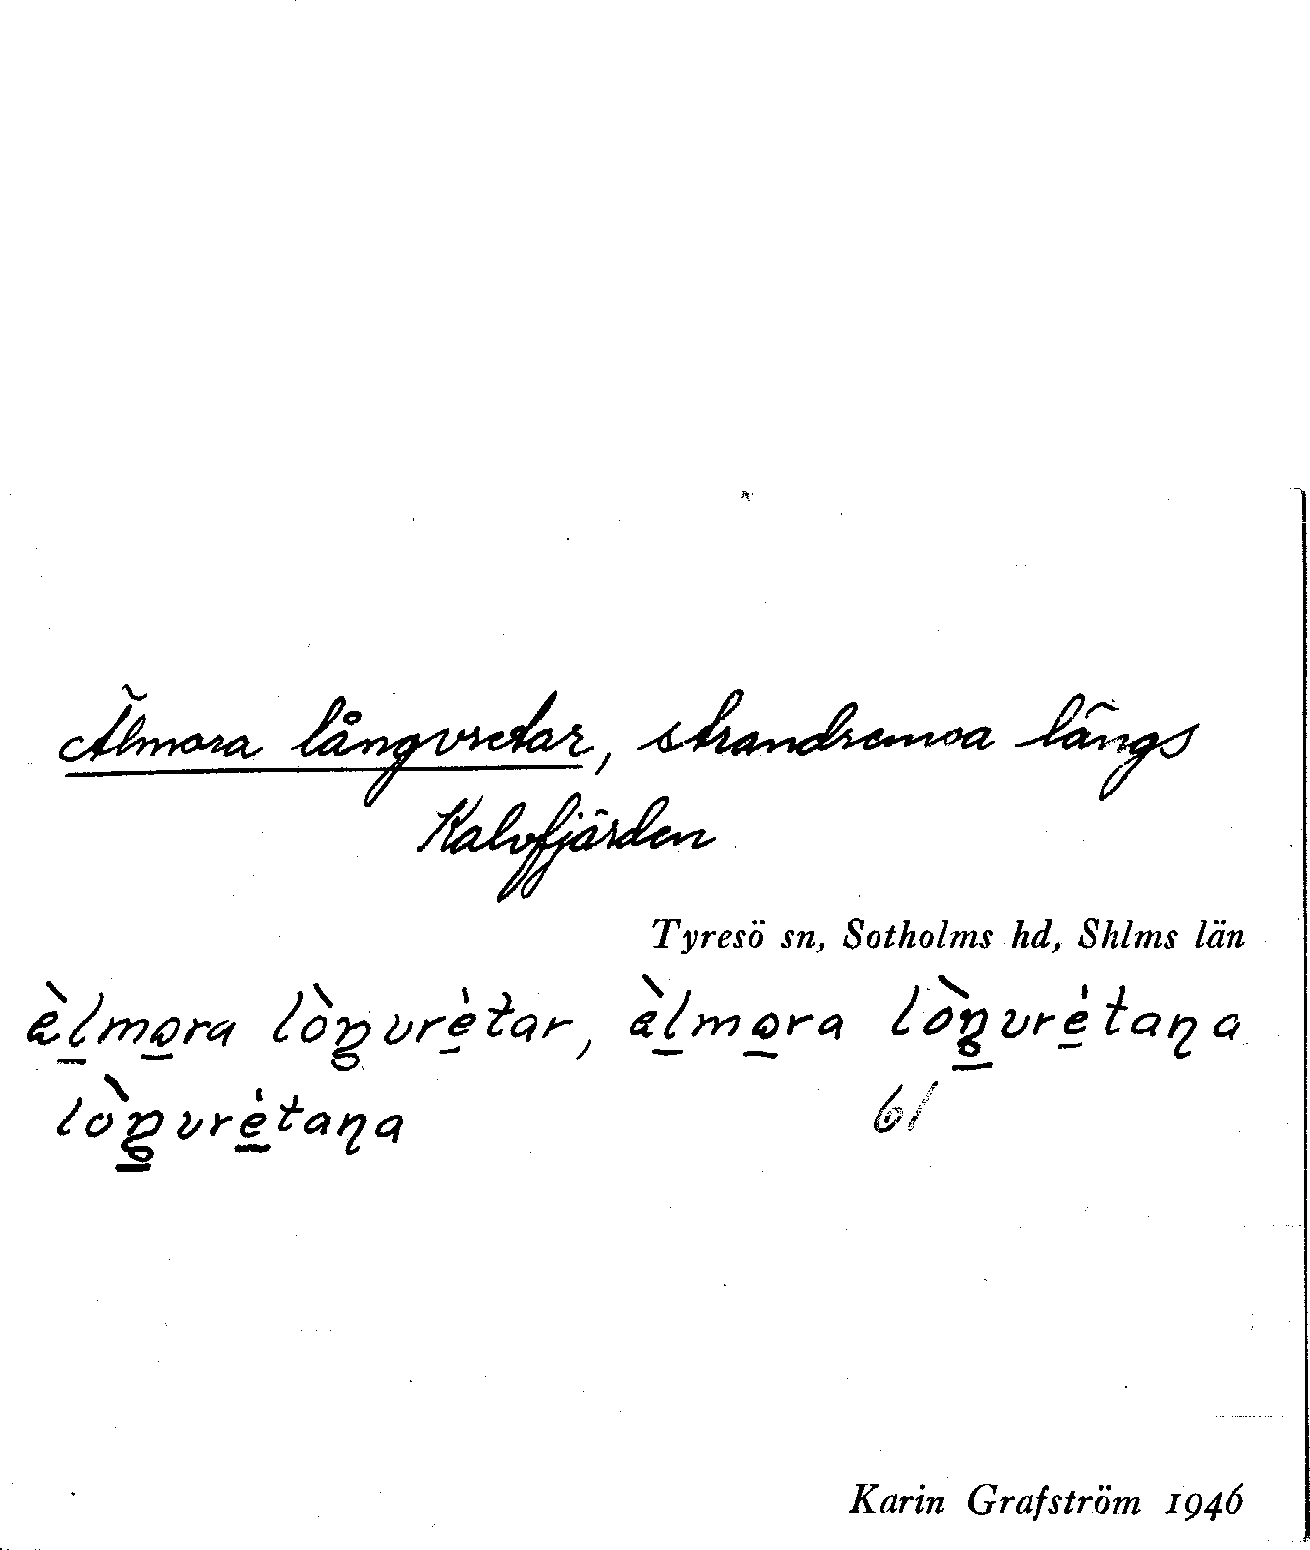 Älmora långvretar, strandremsa längs
Kalvfjärden
Tyresö sn, Sotholms hd, Shlms län
èlmora lòŋvrètar, èlmora lòŋvrètaɳa
lòŋvrètaɳa
61
Karin Grafström 1946